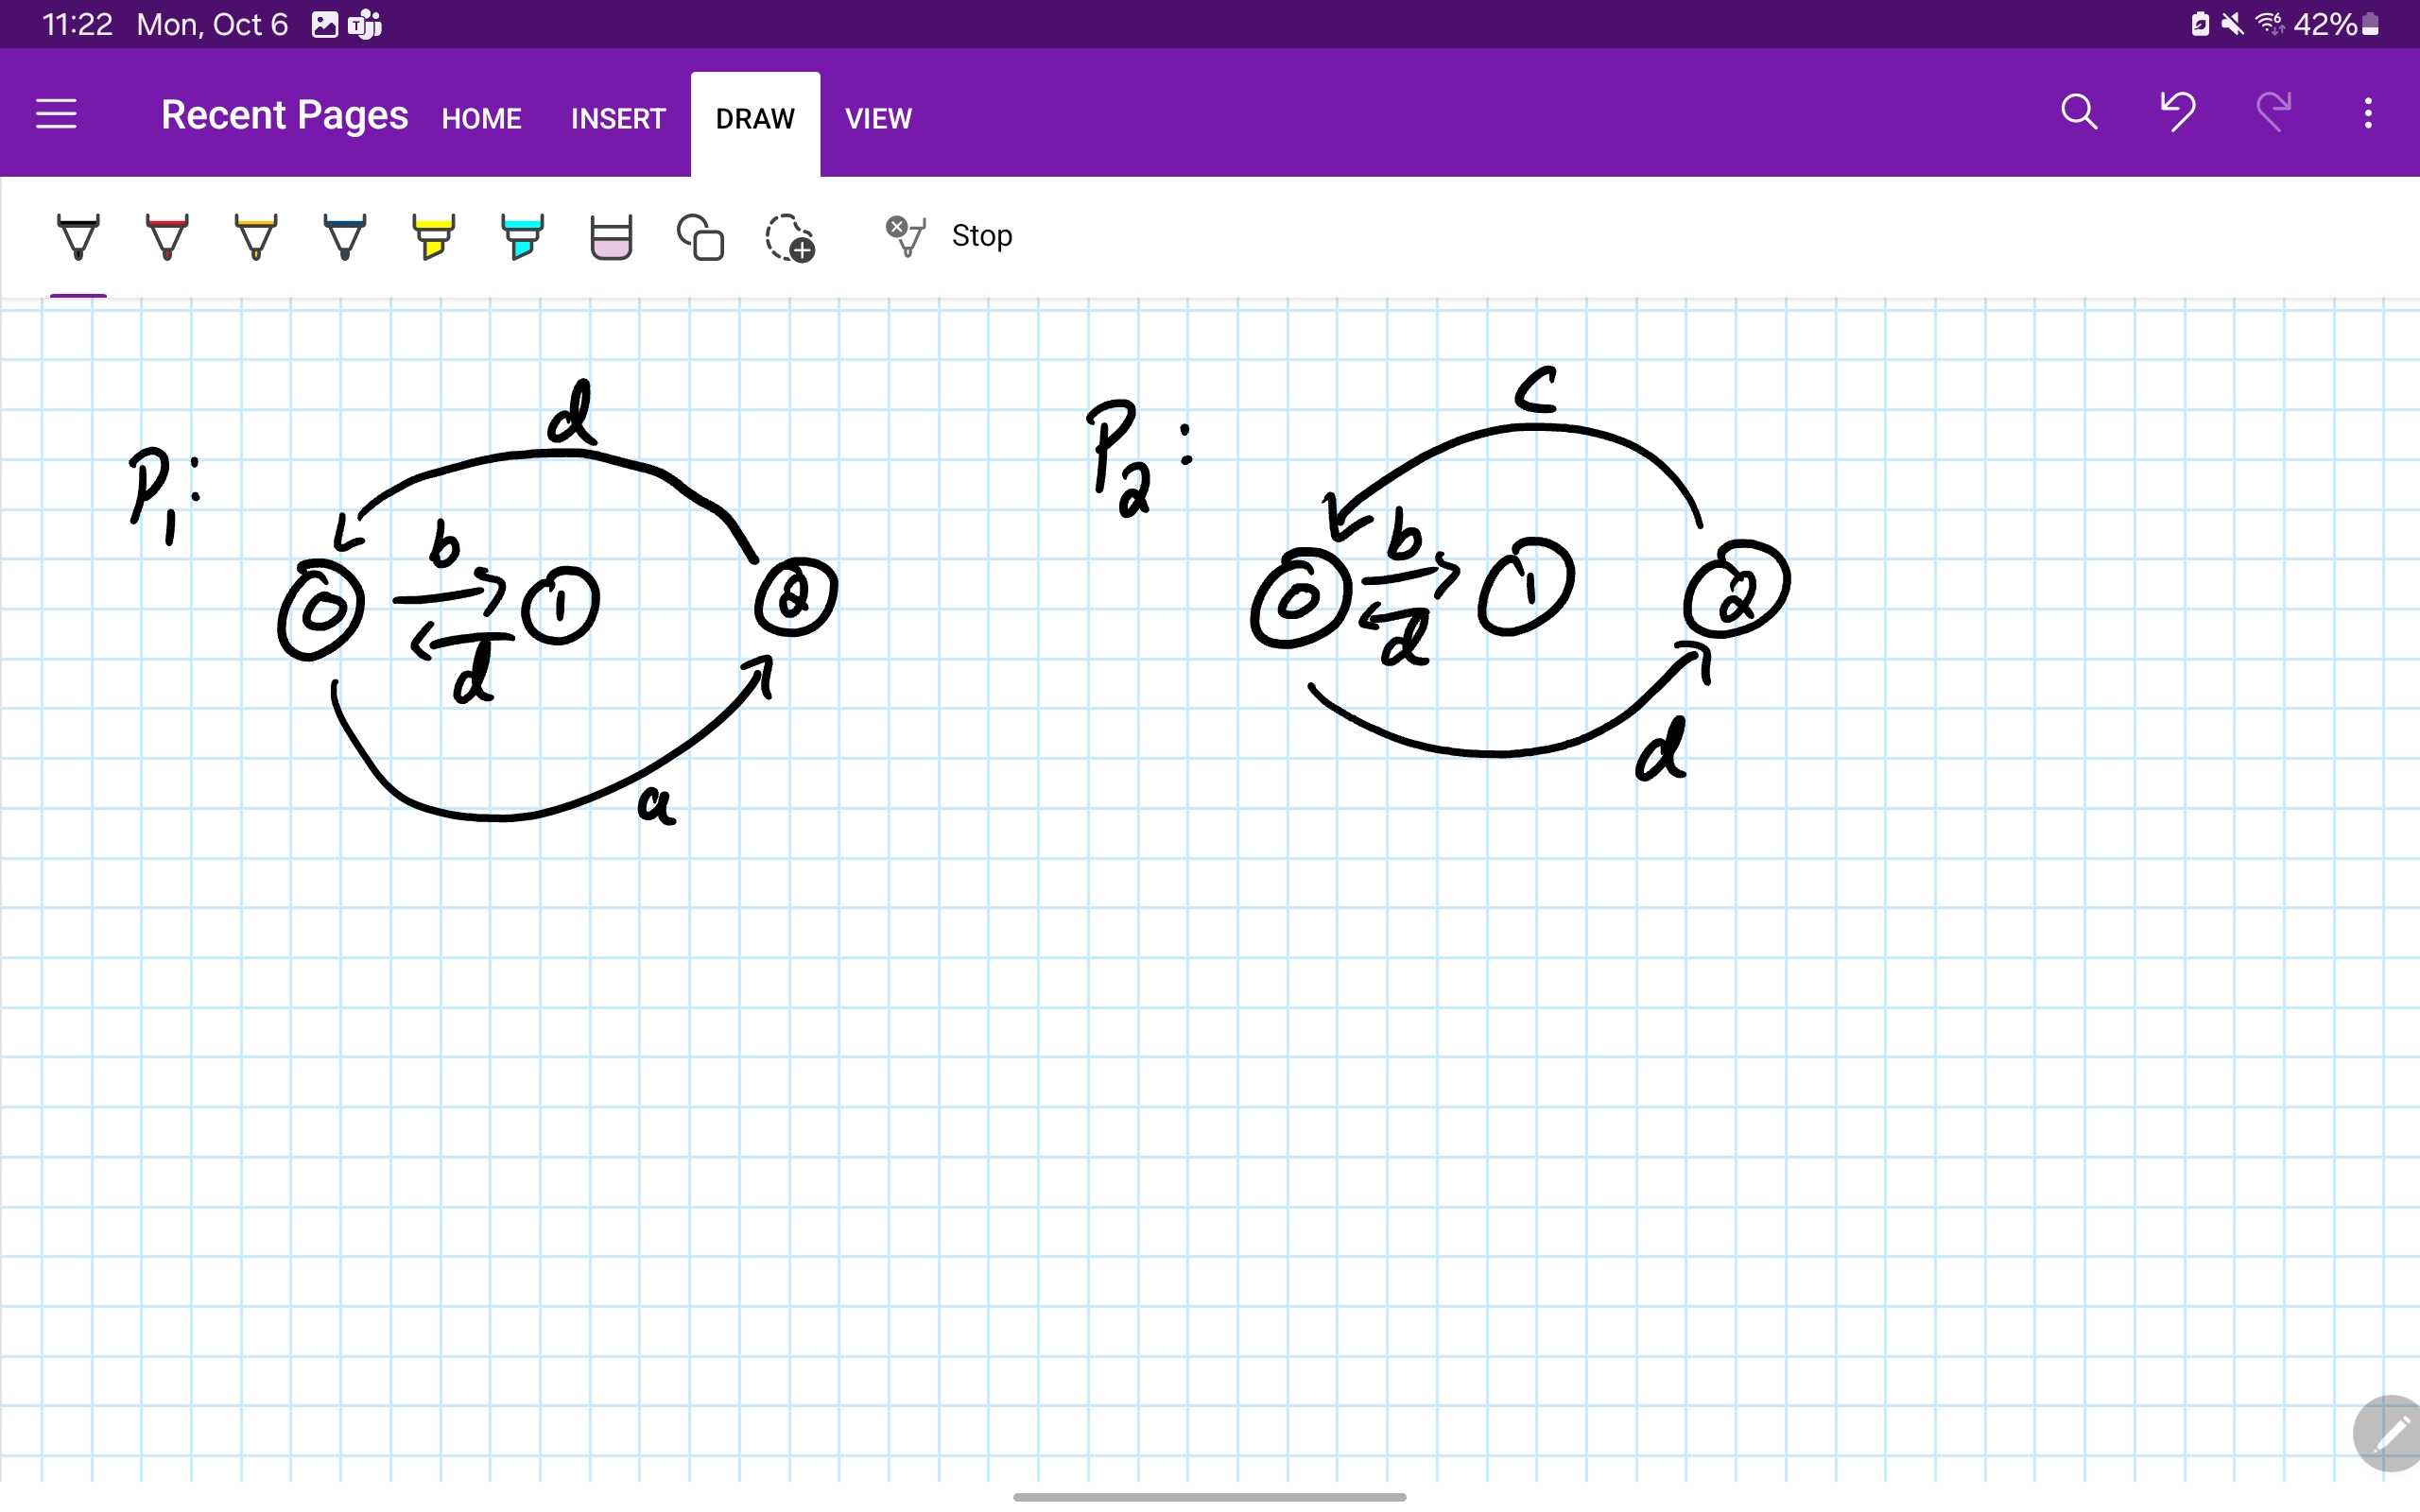 11:22 Mon, Oct 6 42%
Recent Pages HOME INSERT DRAW VIEW
Stop
P1:
d
b
0 1 2
d
a
P2:
c
b
0 1 2
d
d